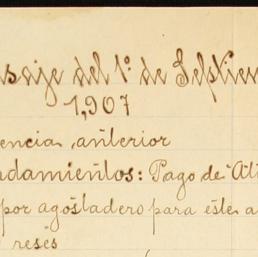 saje del 1º de Septiem
1,907
encia anterior
ndamientos: Pago de
por agostadero para este a
reses